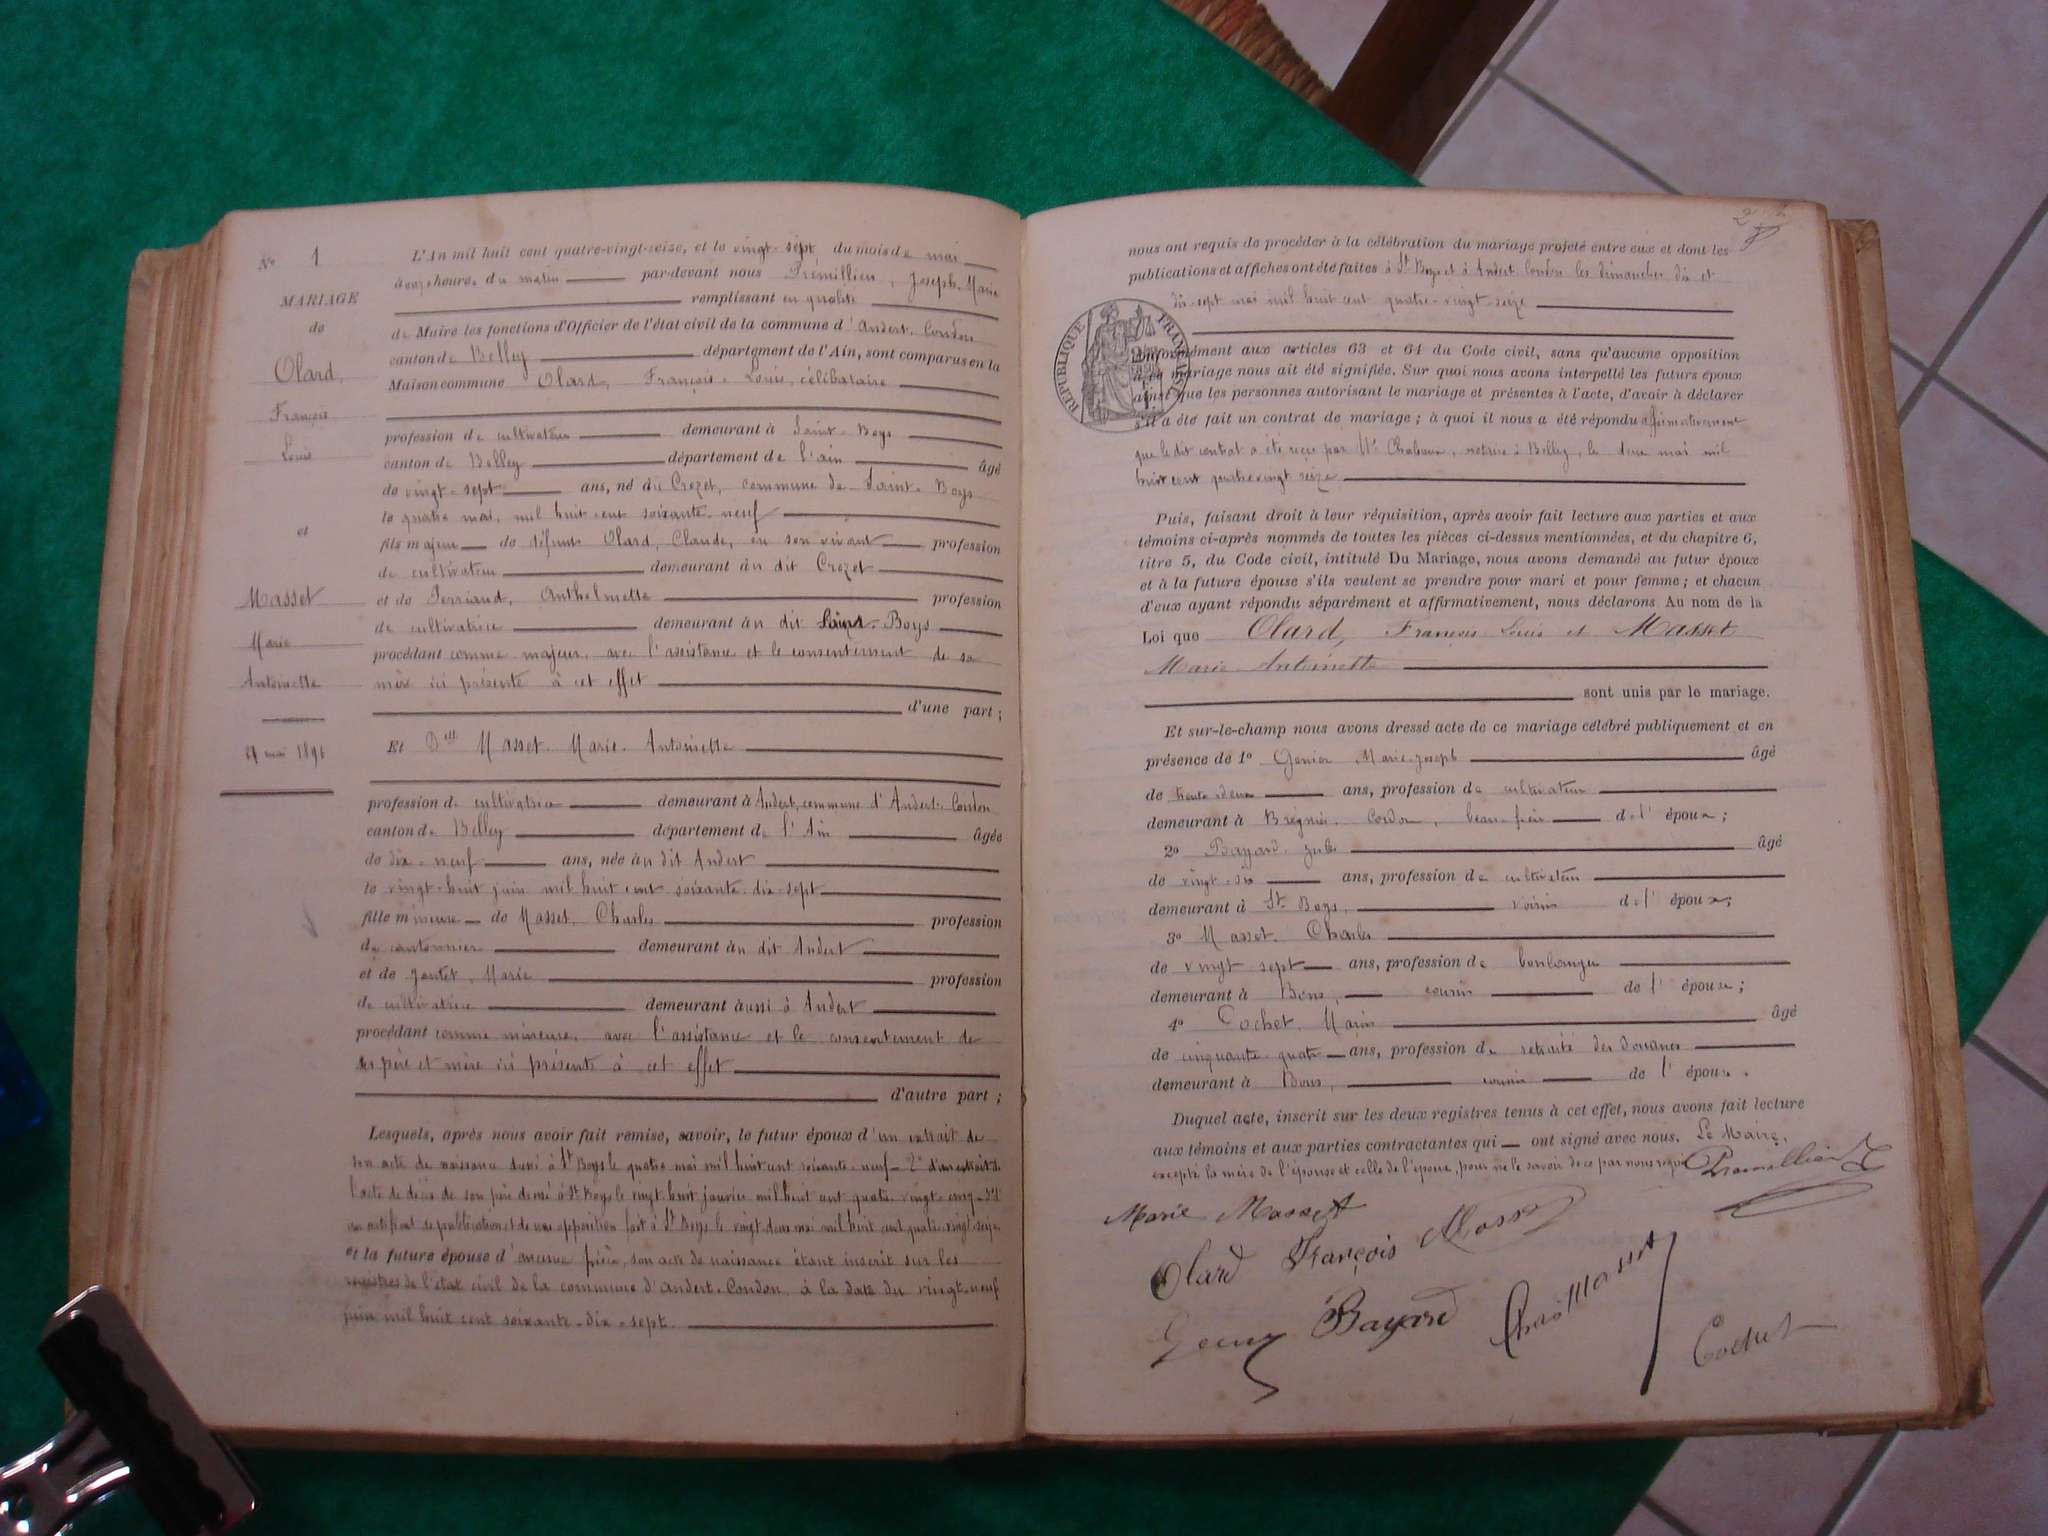 No 1
MARIAGE
de
Olard,
François
Louis
et
Masset
Marie
Antoinette
mai 1896
L'An mil huit cent quatre-vingt-seize, et le vingt-sept du mois de mai
à onze heures du matin par-devant nous Prémillieu, Joseph-Marie
remplissant en qualité
de Maire les fonctions d'Officier de l'état civil de la commune d'Andert-Condon
canton de Belley département de l'Ain, sont comparus en la
Maison commune Olard, François-Louis, célibataire
profession de cultivateur demeurant à Saint-Boys
canton de Belley département de l'ain âgé
de vingt-sept ans, né du Crozet, commune de Saint-Boys
le quatre mai, mil huit cent soixante-neuf
fils majeur de défunt Olard, Claude, en son vivant profession
de cultivateur demeurant au dit Crozet
et de Perriand, Anthelmette profession
de cultivatrice demeurant au dit Saint-Boys
procédant comme majeur, avec l'assistance et le consentement de sa
mère ici présente à cet effet
d'une part;
Et Dlle Masset Marie-Antoinette
profession de cultivatrice demeurant à Andert, commune d'Andert-Condon
canton de Belley département de l'Ain âgée
de dix-neuf ans, née au dit Andert
le vingt-huit juin mil huit cent soixante-dix-sept
fille mineure de Masset Charles profession
de cantonnier demeurant au dit Andert
et de Jantet, Marie profession
de cultivatrice demeurant aussi à Andert
procédant comme mineure, avec l'assistance et le consentement de
ses père et mère ici présents à cet effet
d'autre part;
Lesquels, après nous avoir fait remise, savoir, le futur époux d'un extrait de
son acte de naissance dressé à St Boys le quatre mai mil huit cent soixante-neuf - 2° d'un extrait de
l'acte de décès de son père dressé à St Boys le vingt huit janvier mil huit cent quatre-vingt-cinq - 3° d'
un certificat de publication et de non opposition fait à St Boys le vingt deux mai mil huit cent quatre-vingt-seize
et la future épouse d'aucune pièce, son acte de naissance étant inscrit sur les
registres de l'état civil de la commune d'Andert-Condon à la date du vingt-neuf
juin mil huit cent soixante-dix-sept.
nous ont requis de procéder à la célébration du mariage projeté entre eux et dont les
publications et affiches ont été faites à St Boys et à Andert Condon les dimanches dix et
dix-sept mai mil huit cent quatre-vingt-seize
RÉPUBLIQUE FRANÇAISE
conformément aux articles 63 et 64 du Code civil, sans qu'aucune opposition
au mariage nous ait été signifiée. Sur quoi nous avons interpellé les futurs époux
ainsi que les personnes autorisant le mariage et présentes à l'acte, d'avoir à déclarer
s'il a été fait un contrat de mariage; à quoi il nous a été répondu affirmativement
que le dit contrat a été reçu par Me notaire à Belley, le mai mil
huit cent quatre vingt seize
Puis, faisant droit à leur réquisition, après avoir fait lecture aux parties et aux
témoins ci-après nommés de toutes les pièces ci-dessus mentionnées, et du chapitre 6,
titre 5, du Code civil, intitulé Du Mariage, nous avons demandé au futur époux
et à la future épouse s'ils veulent se prendre pour mari et pour femme; et chacun
d'eux ayant répondu séparément et affirmativement, nous déclarons Au nom de la
Loi que Olard, François Louis et Masset
Marie-Antoinette
sont unis par le mariage.
Et sur-le-champ nous avons dressé acte de ce mariage célébré publiquement et en
présence de 1° Marie-Joseph âgé
de trente-deux ans, profession de cultivateur
demeurant à Brégnier-Cordon, beau-frère de l'époux;
2° Bayard Jules âgé
de vingt-six ans, profession de cultivateur
demeurant à St Boys, voisin de l'époux;
3° Masset Charles
de vingt sept ans, profession de boulanger
demeurant à Bons, cousin de l'épouse;
4° Cochet Marin âgé
de cinquante-quatre ans, profession de retraité des Douanes
demeurant à Bons, cousin de l'épouse.
Duquel acte, inscrit sur les deux registres tenus à cet effet, nous avons fait lecture
aux témoins et aux parties contractantes qui ont signé avec nous. Le Maire,
excepté la mère de l'épouse et celle de l'époux, pour ne le savoir de ce par nous requis
Prémillieu
Marie Masset
Olard François Masset
Bayard Charles Masset
Cochet